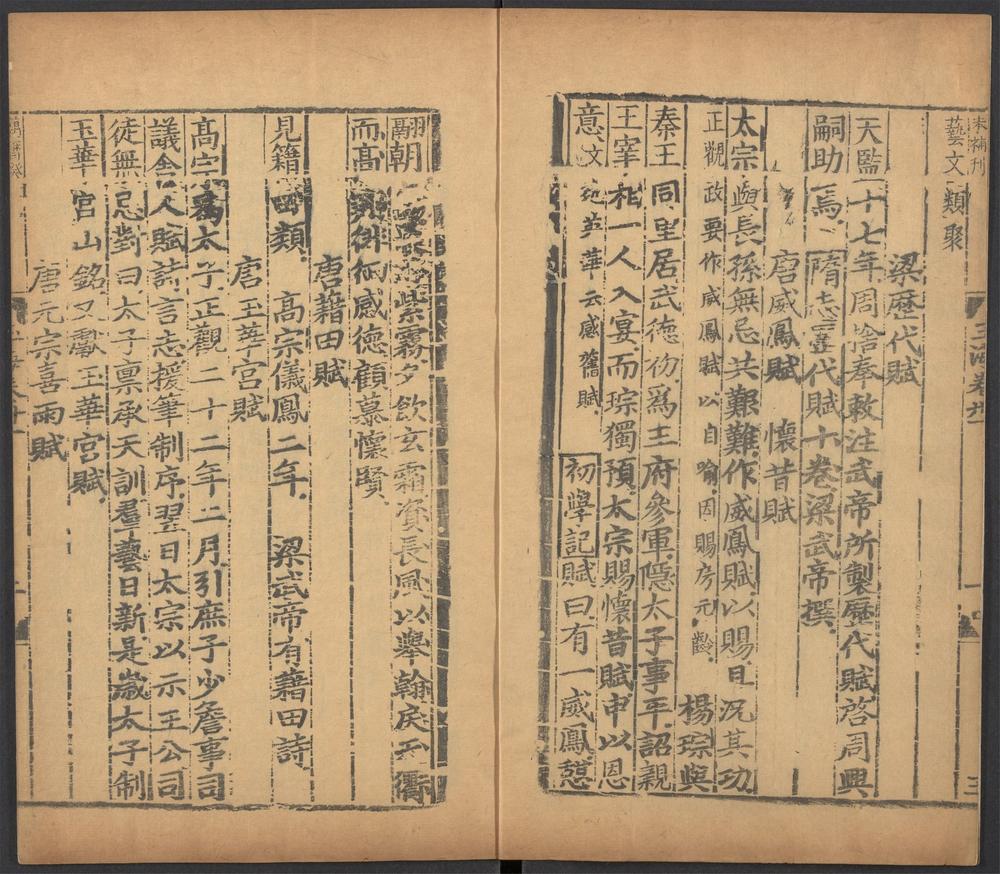 藝文類聚
梁歷代賦
天監十七年周捨奉敕注武帝所製歷代賦啓周興
嗣助焉隋志歷代賦十卷梁武帝撰
唐威鳳賦 懷昔賦
太宗與長孫無忌共艱難作威鳳賦以賜且況其功
正觀政要作威鳳賦以自喻因賜房元齡 楊琮與
秦王同里居武德初爲王府參軍隱太子事平詔親
王宰相一人入宴而琮獨預太宗賜懷昔賦申以恩
意文苑英華云感舊賦 初學記賦曰有一威鳳憩
翮朝紫霧夕飲玄霜資長風以舉翰戾天衢
而高感德顧慕懷賢
唐藉田賦
見籍田類 高宗儀鳳二年 梁武帝有藉田詩
唐玉華宮賦
高宗爲太子正觀二十二年二月引庶子少詹事司
議舍人賦詩言志援筆制序翌日太宗以示王公司
徒無忌對曰太子禀承天訓羣藝日新是歲太子制
玉華宮山銘又獻玉華宮賦
唐元宗喜雨賦